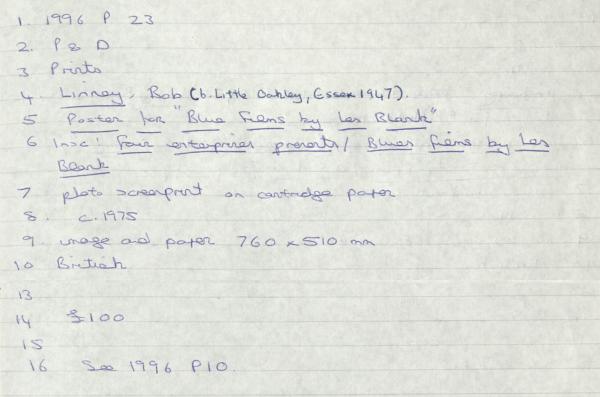 1. 1996 P 23
2. P & D
3 Prints
4 Linney, Bob (b. Little Oakley, Essex 1947).
5 Poster for "Blue Films by Les Blank"
6 Insc: Four enterprises presents / Blues films by Les
Blank
7 photo screenprint on cartridge paper
8. c. 1975
9. image and paper 760 x 510 mm
10 British
13
14 £100
15
16 See 1996 P10.